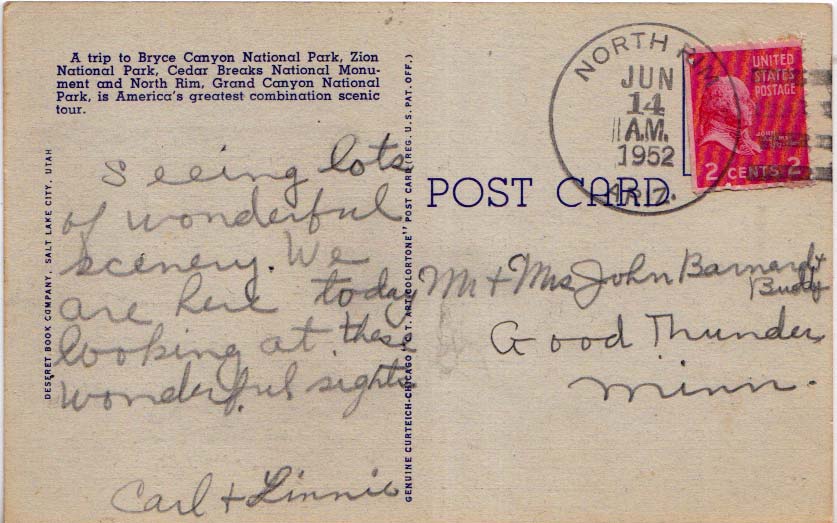 A trip to Bryce Canyon National Park, Zion
National Park, Cedar Breaks National Monu-
ment and North Rim, Grand Canyon National
Park, is America's greatest combination scenic
tour.
Seeing lots
of wonderful
scenery. We
are here today
looking at these
wonderful sights
Carl + Linnie
DESERET BOOK COMPANY, SALT LAKE CITY, UTAH
GENUINE CURTEICH-CHICAGO "C.T. ART-COLORTONE" POST CARD (REG. U.S. PAT. OFF.)
POST CARD
NORTH RIM
JUN
14
A.M.
1952
ARIZ.
UNITED
STATES
POSTAGE
JOHN ADAMS
2 CENTS 2
Mr + Mrs John Barnard +
Buddy
Good Thunder
Minn.